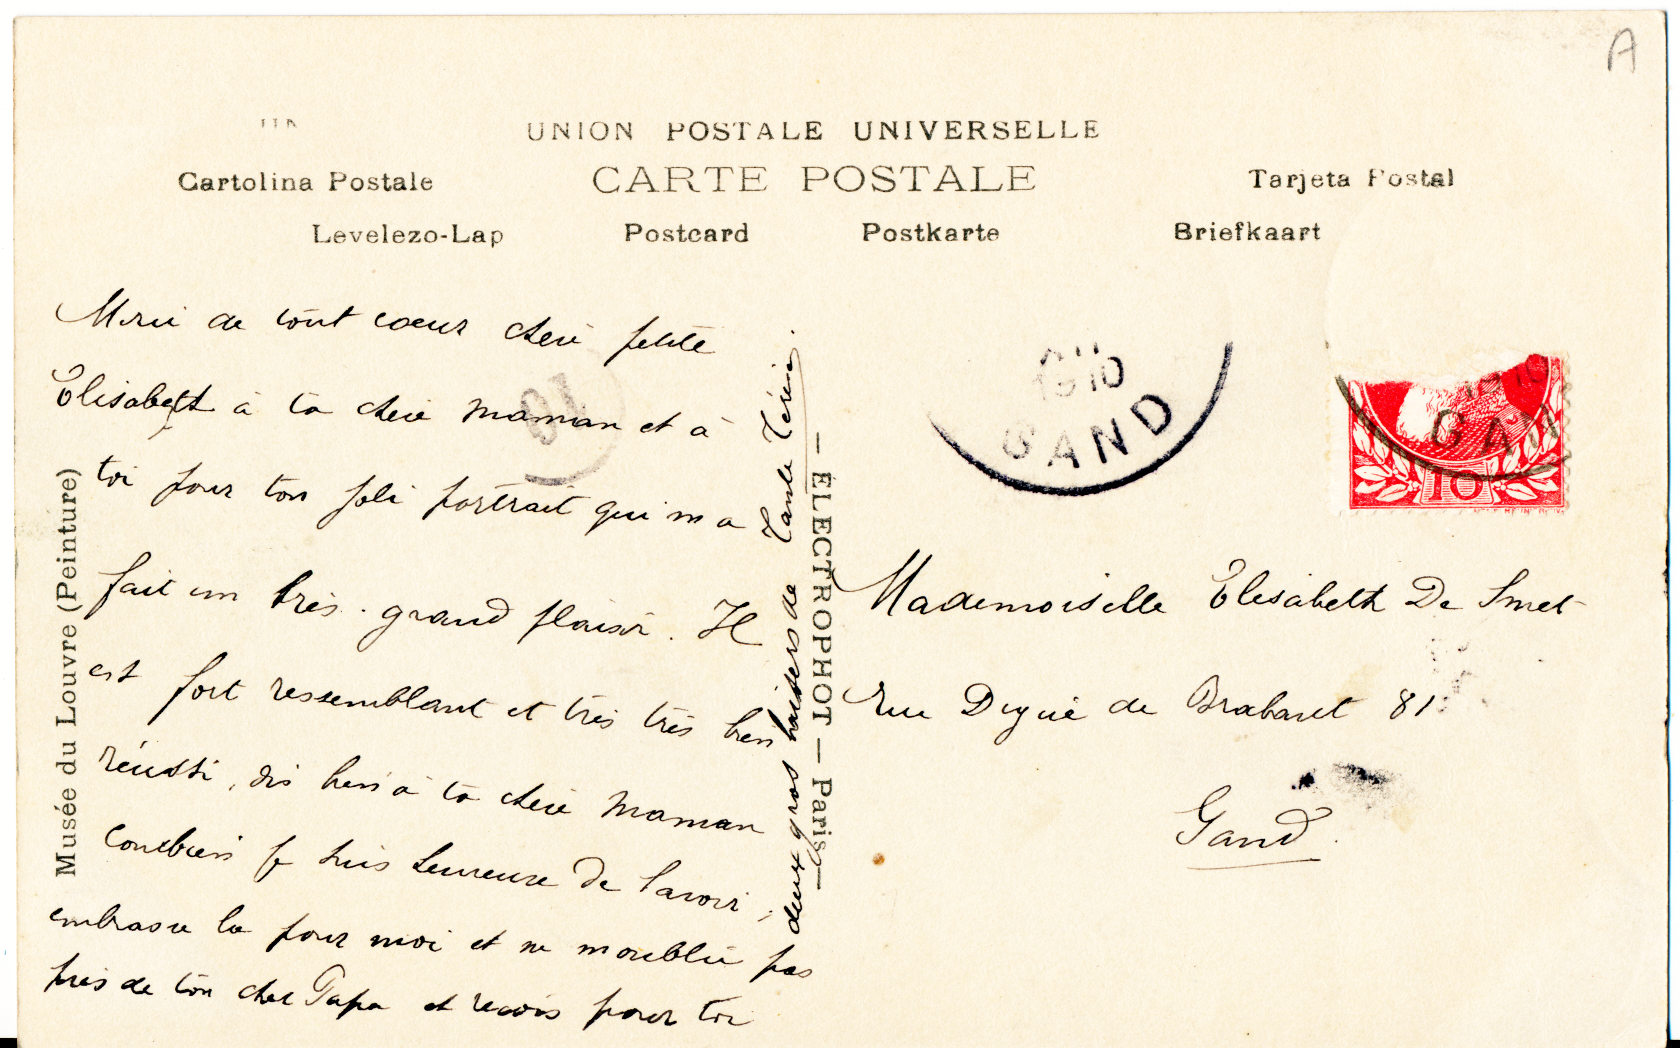 A
UNION POSTALE UNIVERSELLE
Cartolina Postale CARTE POSTALE Tarjeta Postal
Levelezo-Lap Postcard Postkarte Briefkaart
Merci de tout coeur chère petite
Elisabeth à ta chère maman et à
toi pour ton joli portrait qui m'a
fait un très grand plaisir. Il
est fort ressemblant et très très bien
réussi, dis bien à ta chère maman
combien je suis heureuse de l'avoir,
embrasse la pour moi et ne m'oublie pas
près de ton cher Papa et reçois pour toi
deux gros baisers de Tante
Musée du Louvre (Peinture)
— ÉLECTROPHOT — Paris —
1910
GAND
10
GAN
10
Mademoiselle Elisabeth De Smet
rue Digue de Brabant 81
Gand.